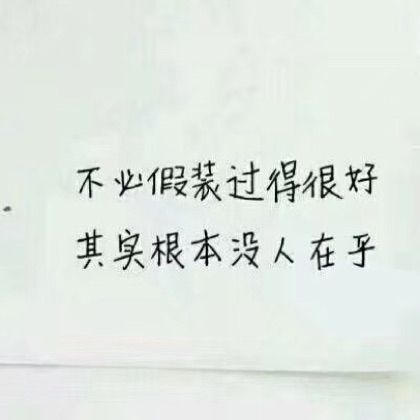 不必假装过得很好
其实根本没人在乎